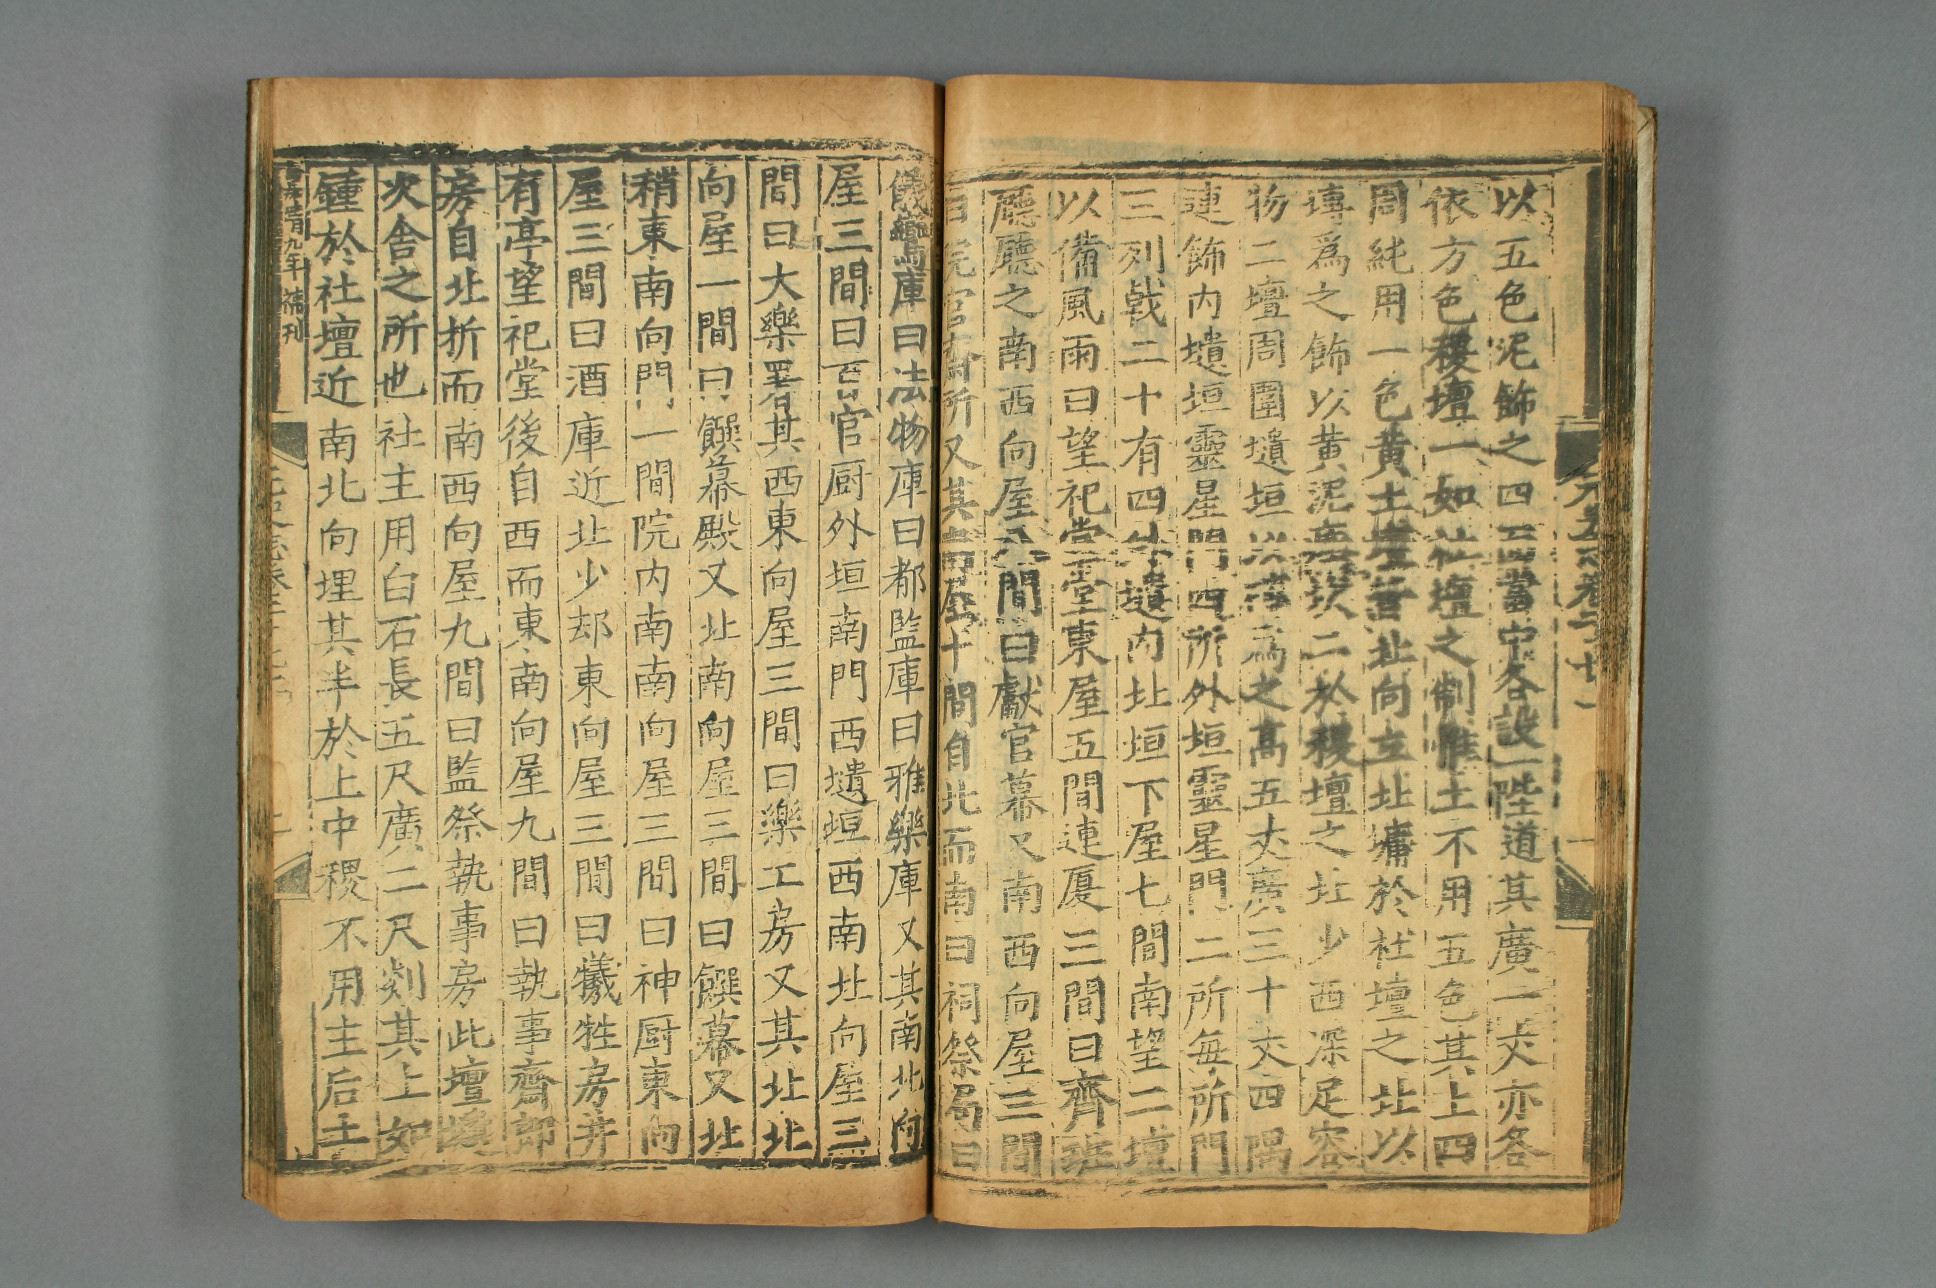 元史志卷二十七
以五色泥飾之四面當中各設一陛道其廣一丈亦各
依方色稷壇一如社壇之制惟土不用五色其上四
周純用一色黃土壇皆北向立北墉於社壇之北以
塼爲之飾以黃泥瘞坎二於稷壇之北少西深足容
物二壇周圍壝垣以塼爲之高五丈廣三十丈四隅
連飾内壝垣靈星門四所外垣靈星門二所每所門
三列戟二十有四外壝内北垣下屋七間南望二壇
以備風雨曰望祀堂堂東屋五間連厦三間曰齊班
廳廳之南西向屋八間曰獻官幕又南西向屋三間
曰院官齋所又其南屋十間自北而南曰祠祭局曰
儀鸞庫曰法物庫曰都監庫曰雅樂庫又其南北向
屋三間曰百官厨外垣南門西壝垣西南北向屋三
間曰大樂署其西東向屋三間曰樂工房又其北北
向屋一間曰饌幕殿又北南向屋三間曰饌幕又北
稍東南向門一間院内南南向屋三間曰神厨東向
屋三間曰酒庫近北少却東向屋三間曰犧牲房井
有亭望祀堂後自西而東南向屋九間曰執事齋郎
房自北折而南西向屋九間曰監祭執事房此壇壝
次舍之所也社主用白石長五尺廣二尺剡其上如
鍾於社壇近南北向埋其半於上中稷不用主后土
嘉靖九年補刊
元史志卷二十七